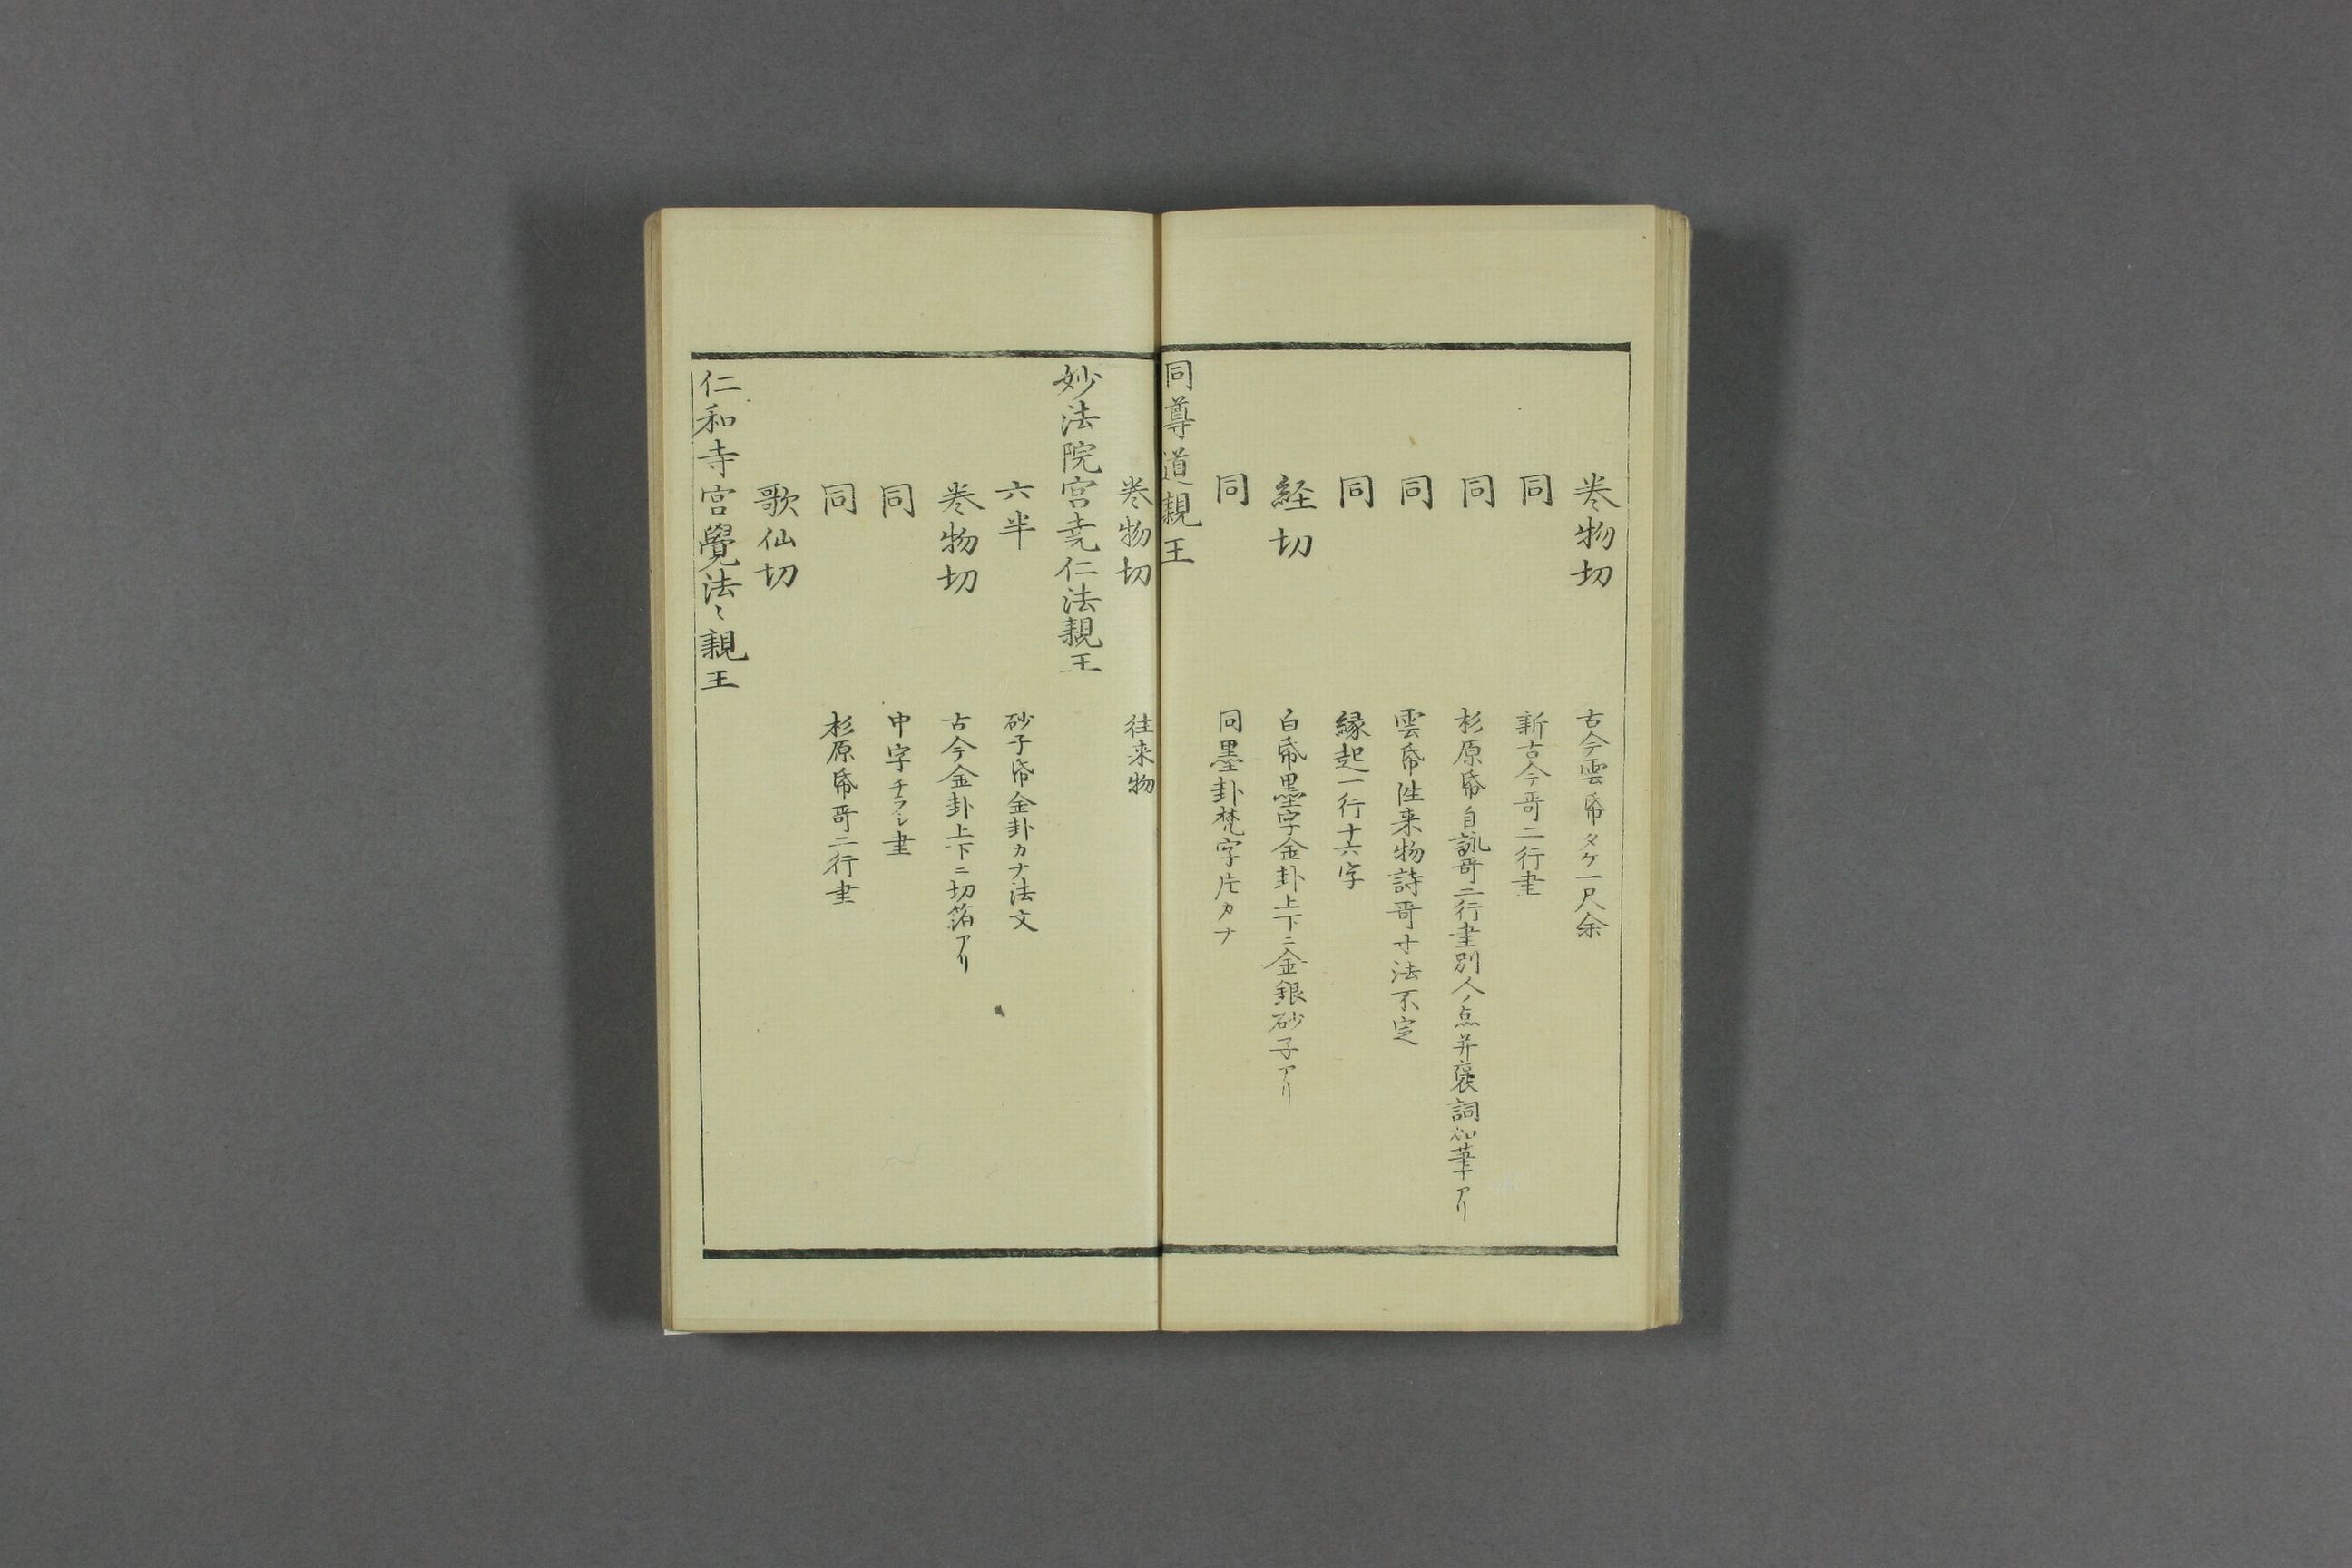 巻物切 古今雲帋タケ一尺余
同 新古今哥二行書
同 杉原帋自詠哥二行書別人ノ点并褒詞加筆アリ
同 雲帋往来物詩哥寸法不定
同 縁起一行十六字
経切 白帋墨字金卦上下ニ金銀砂子アリ
同 同墨卦梵字片カナ
同尊道親王
巻物切 往来物
妙法院宮尭仁法親王
六半 砂子帋金卦カナ法文
巻物切 古今金卦上下ニ切箔アリ
同 中字チラシ書
同 杉原帋哥二行書
歌仙切
仁和寺宮覺法〻親王